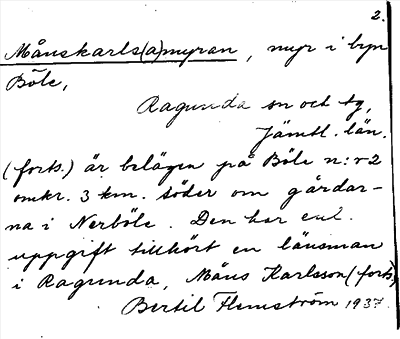 2.
Månskarls(a)myran, myr i byn
Böle,
Ragunda sn och tg,
Jämtl. län.
(forts.) är belägen på Böle n:r 2
omkr. 3 km. söder om gårdar-
na i Nerböle. Den har enl.
uppgift tillhört en länsman
i Ragunda, Måns Karlsson (forts.)
Bertil Flemström 1937.